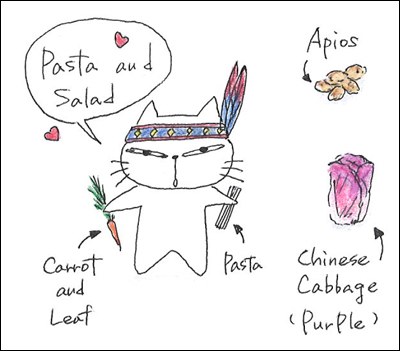 Pasta and
Salad
Apios
Carrot
and
Leaf
Pasta
Chinese
Cabbage
(Purple)